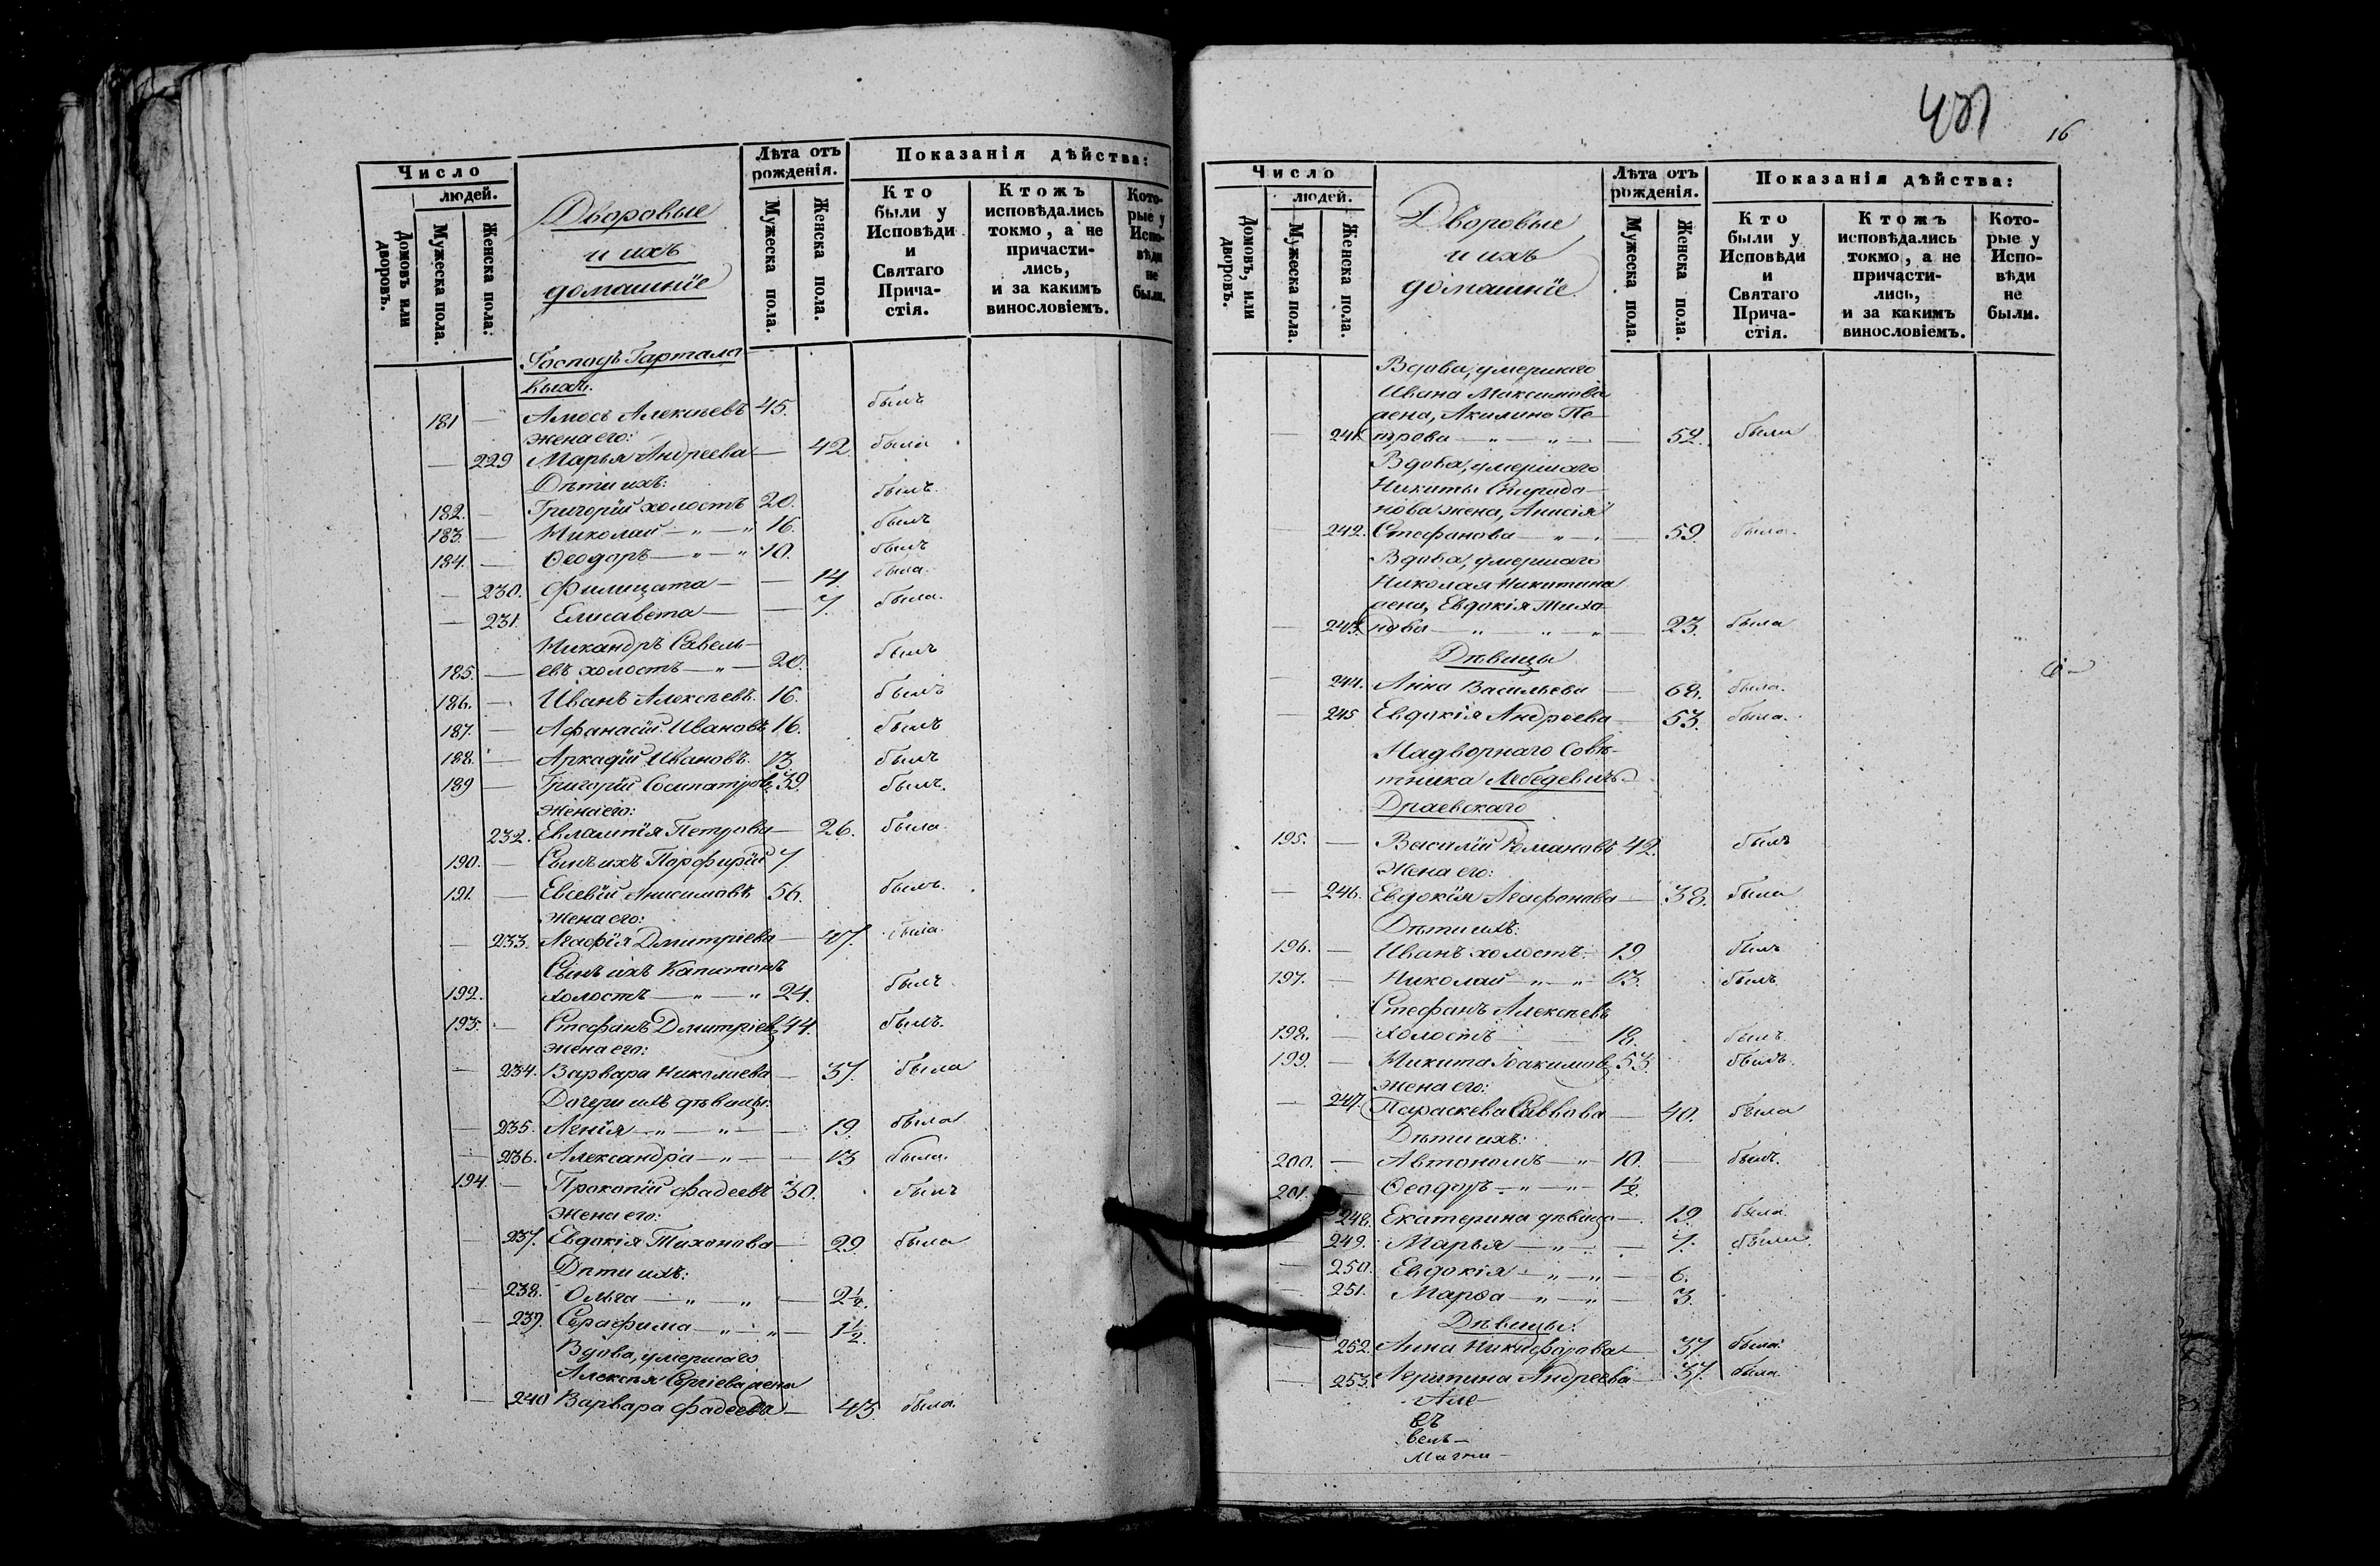 Число
людей.
Домовъ или дворовъ.
Мужеска пола.
Женска пола.
Дворовые
и ихъ
домашніе
Лѣта отъ рожденія.
Мужеска пола.
Женска пола.
Показанія дѣйства:
Кто были у Исповѣди и Святаго Причастія.
Ктожъ исповѣдались токмо, а не причастились, и за какимъ винословіемъ.
Которые у Исповѣди не были.
Господъ Гартала-
выхъ.
181 — Амосъ Алексѣевъ 45. былъ
жена его:
— 229 Марья Андреева — 42 была
Дѣти ихъ:
182. — Григорій холостъ 20. былъ.
183. — Николай — „ — „ 16. былъ
184. — Ѳеодоръ — „ — „ 10. былъ
— 230. Филицата — — 14. была.
— 231. Елисавета — — 7. была.
Никандръ Савель-
185. — евъ холостъ — „ — 20. былъ
186. — Иванъ Алексѣевъ. 16. былъ
187. — Афанасій Ивановъ 16. былъ
188. — Аркадій Ивановъ. 13. былъ
189 — Григорій Сосипатровъ 39. былъ.
Жена его:
232. Евлампія Петрова — 26. была.
190. — Сынъ ихъ Порфирій 7
191. — Евсевій Анисимовъ 56. былъ.
Жена его:
— 233. Агафія Дмитріева — 47. была.
Сынъ ихъ Капитонъ
192. холостъ — „ — „ 24. былъ.
193. — Стефанъ Дмитріевъ 44. былъ.
жена его:
— 234. Варвара Николаева — 37. была
Дочери ихъ дѣвицы:
— 235. Агнія — „ — „ — — 19. была
— 236. Александра — „ — — 13 была.
194. — Прокопій Фадеевъ 30. былъ
Жена его:
— 237. Евдокія Тихонова — 29. была
Дѣти ихъ:
— 238. Ольга — „ — „ — 2½.
— 239. Серафима — „ — „ — 1½.
Вдова, умершаго
Алексѣя Сергіева жена
— 240 Варвара Фадеева — 43. была.
16
Число
людей.
Домовъ, или дворовъ.
Мужеска пола.
Женска пола.
Дворовые
и ихъ
домашніе.
Лѣта отъ рожденія.
Мужеска пола.
Женска пола.
Показанія дѣйства:
Кто были у Исповѣди и Святаго Причастія.
Ктожъ исповѣдались токмо, а не причастились, и за какимъ винословіемъ.
Которые у Исповѣди не были.
Вдова, умершаго
Ивана Максимова
жена, Акилина Пе-
— 241. трова — „ — „ — — 52. была
Вдова, умершаго
Никиты Спиридо-
нова жена, Анисія
— 242. Стефанова — „ — — 59. была.
Вдова, умершаго
Николая Никитина
жена, Евдокія Тихо-
— 243. нова — „ — „ — „ — 23. была
Дѣвицы
— 244. Анна Васильева — 68. была.
— 245 Евдокія Андреева — 53. была.
Надворнаго Совѣ-
тника Лебедевичъ-
Драевскаго
195. — Василій Романовъ 42. былъ
Жена его:
— 246. Евдокія Агафонова — 38. была
Дѣти ихъ:
196. — Иванъ холостъ. 19. былъ
197. — Николай — „ — „ 13. былъ.
Стефанъ Алексѣевъ
198. — холостъ 18. былъ.
199. — Никита Іоакимовъ 53. былъ.
жена его:
— 247. Параскева Саввова — 40. была
Дѣти ихъ:
200. — Автономъ — „ 10. — былъ.
201. — Ѳеодоръ — „ — „ — 1½.
248. Екатерина дѣвица — 19. была.
— 249. Марья — „ — „ — 7. была.
— 250. Евдокія — „ — „ — 6.
— 251. Марѳа — „ — „ — 3.
Дѣвицы:
— 252. Анна Никифорова — 37 была.
— 253. Агрипина Андреева 37. была.
Але-
въ